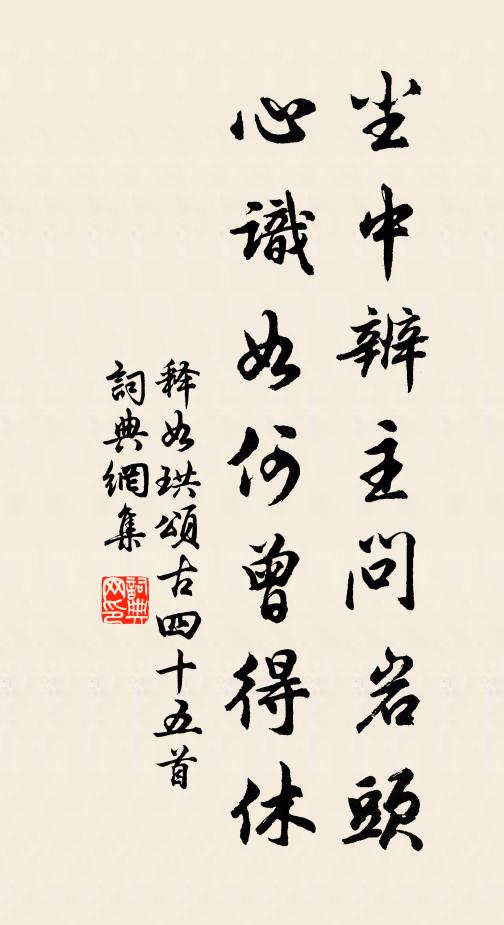 尘中辨主問岩頭
心識如何曾得休
釋如珙頌古四十五首
詞典網集
詞典網印